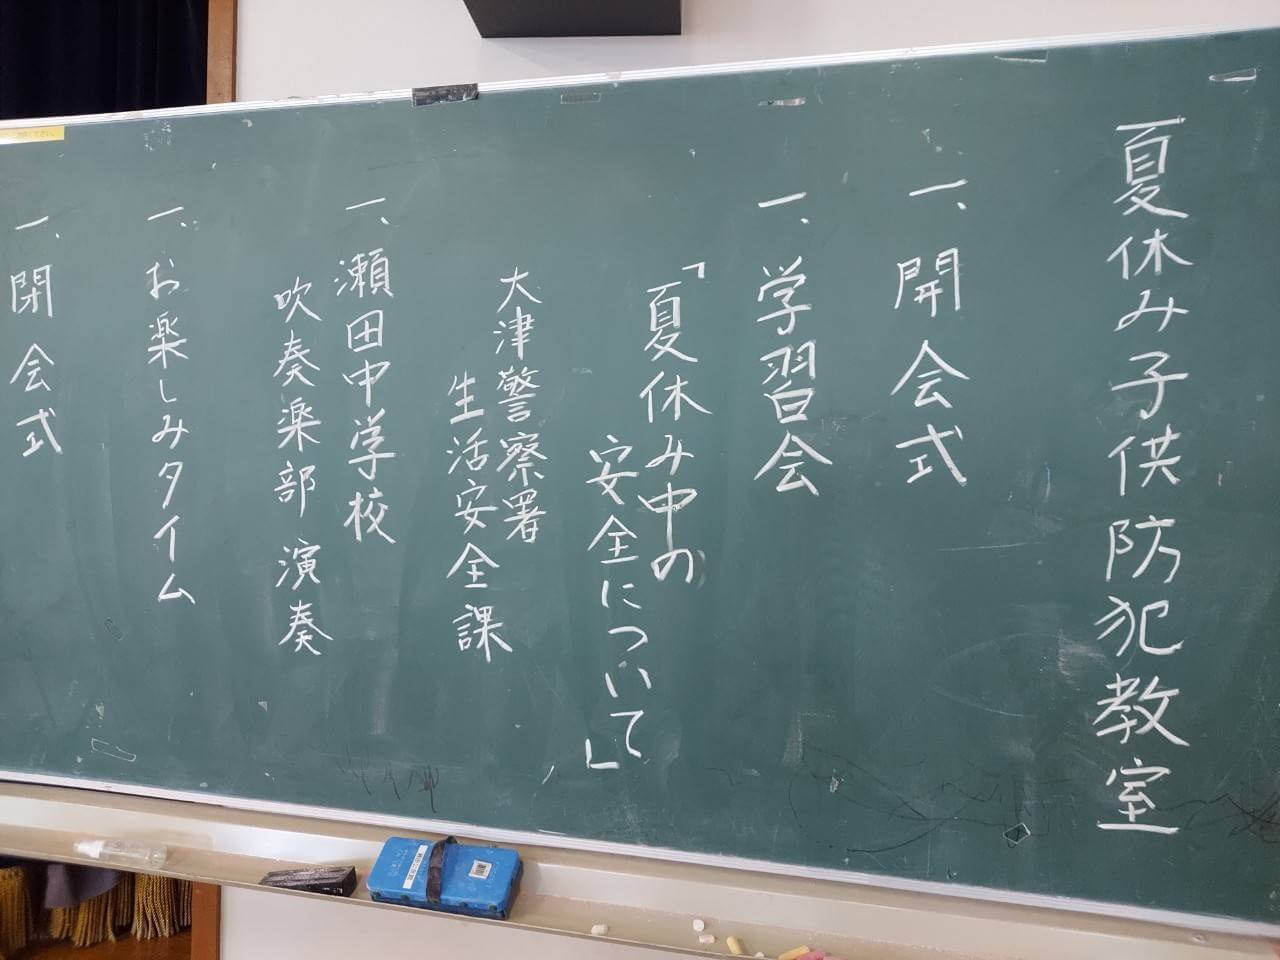 夏休み子供防犯教室
一、開会式
一、学習会
「夏休み中の
安全について」
大津警察署
生活安全課
一、瀬田中学校
吹奏楽部 演奏
一、お楽しみタイム
一、閉会式